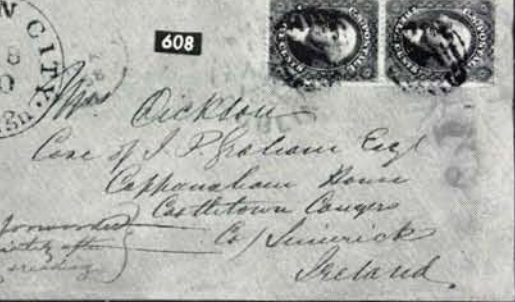 N CITY.
8
0
608
Mrs Dickson
Care of J. P. Graham Esqr
Cappanaham House
Castletown Conyers
Co/ Limerick
Ireland
forwarded
after
reading